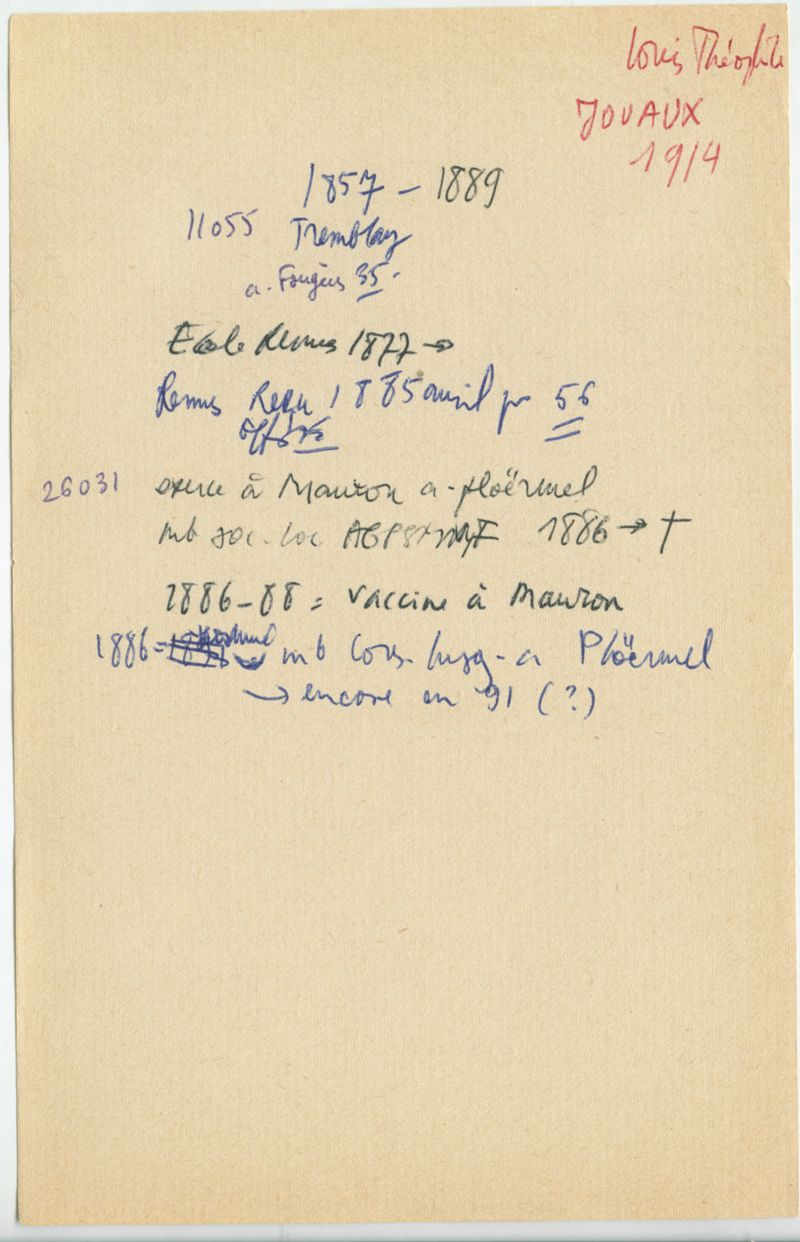 Louis Théophile
JOUAUX
1914
1857 - 1889
11055 Tremblay
a. Fougères 35.
Ecole Rennes 1877 →
Rennes Reçu 1885 avril pr 56
26031 exerce à Mauron a. ploërmel
mb soc. loc 1886 → †
1886-88 = vaccine à Mauron
1886 = mb Cons. hyg. a Ploërmel
→ encore en 91 (?)